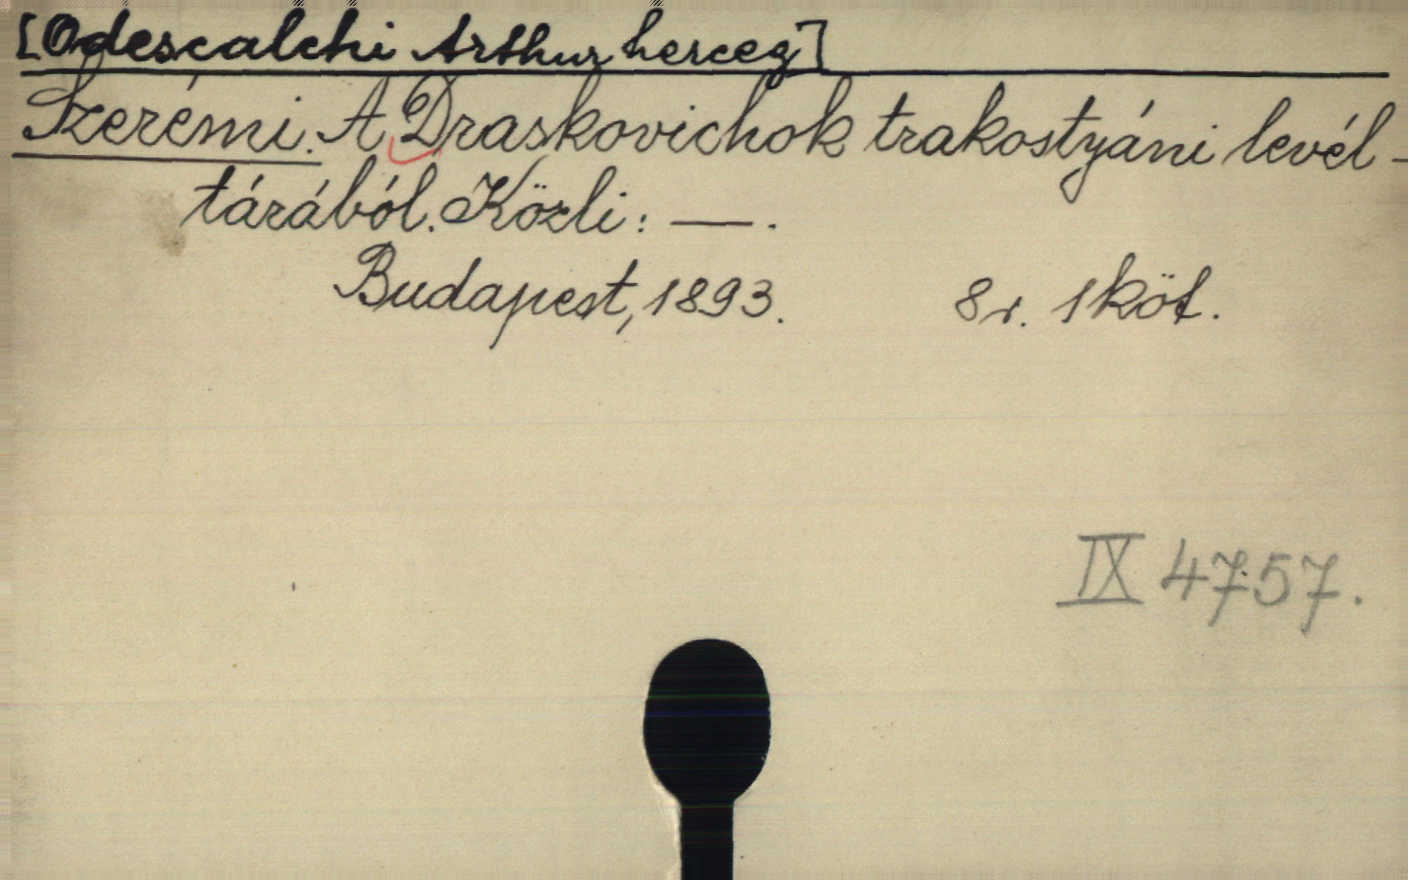 [Odescalchi Arthur herceg]
Szerémi. A Draskovichok trakostyáni levél-
tárából. Közli: —.
Budapest, 1893. 8r. 1 köt.
IX 4757.